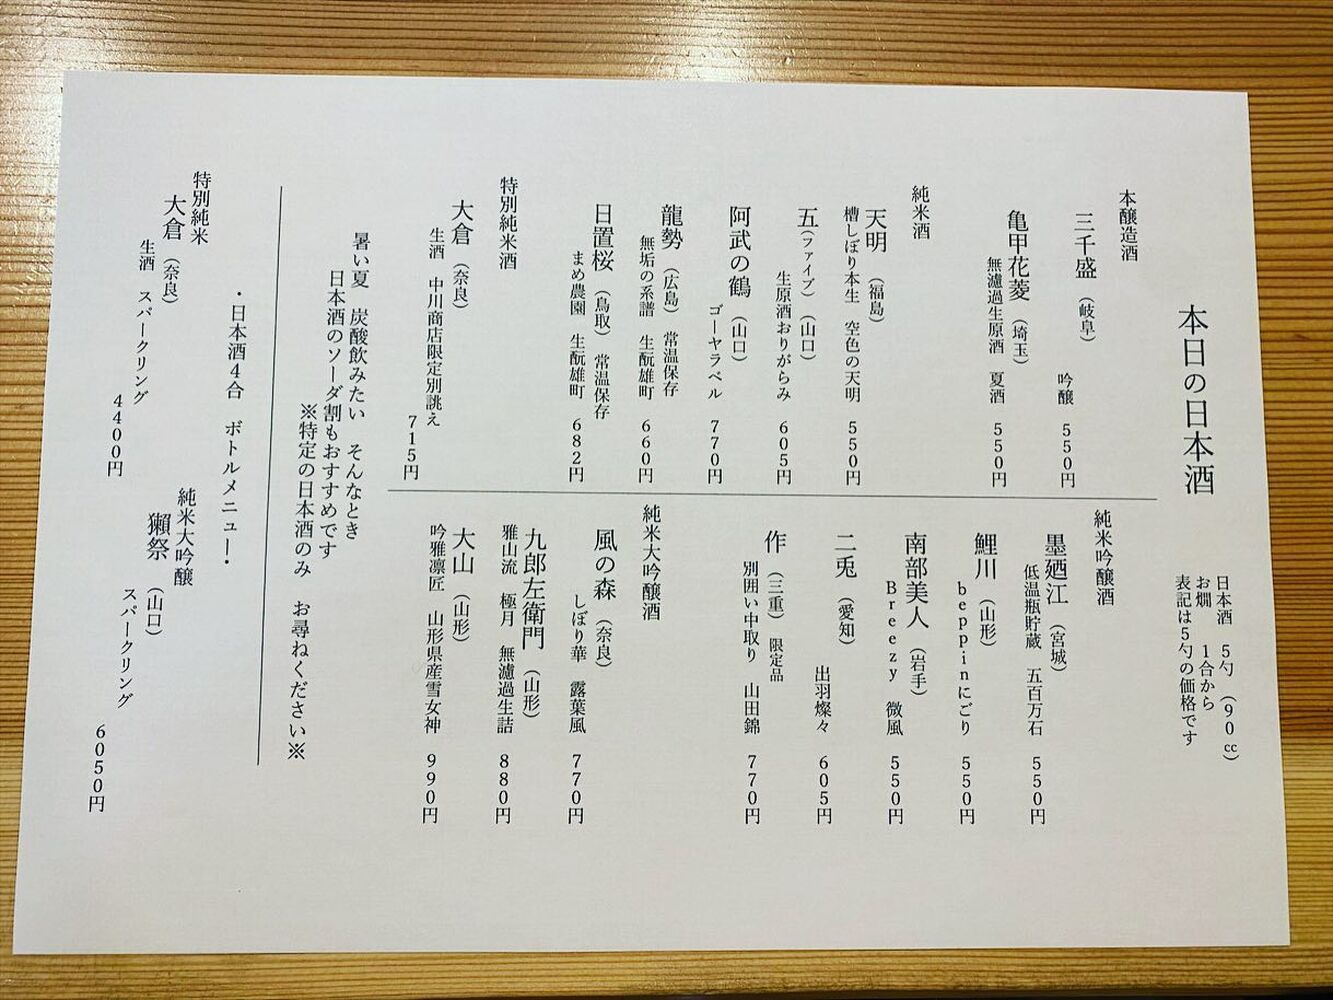 本日の日本酒
日本酒 5勺 (90cc)
お燗 1合から
表記は5勺の価格です
本醸造酒
三千盛 (岐阜)
吟醸 550円
亀甲花菱 (埼玉)
無濾過生原酒 夏酒 550円
純米酒
天明 (福島)
槽しぼり本生 空色の天明 550円
五(ファイブ) (山口)
生原酒おりがらみ 605円
阿武の鶴 (山口)
ゴーヤラベル 770円
龍勢 (広島) 常温保存
無垢の系譜 生酛雄町 660円
日置桜 (鳥取) 常温保存
まめ農園 生酛雄町 682円
特別純米酒
大倉 (奈良)
生酒 中川商店限定別誂え
715円
純米吟醸酒
墨廼江 (宮城)
低温瓶貯蔵 五百万石 550円
鯉川 (山形)
beppinにごり 550円
南部美人 (岩手)
Breezy 微風 550円
二兎 (愛知)
出羽燦々 605円
作 (三重) 限定品
別囲い中取り 山田錦 770円
純米大吟醸酒
風の森 (奈良)
しぼり華 露葉風 770円
九郎左衛門 (山形)
雅山流 極月 無濾過生詰 880円
大山 (山形)
吟雅凛匠 山形県産雪女神 990円
暑い夏 炭酸飲みたい そんなとき
日本酒のソーダ割もおすすめです
※特定の日本酒のみ お尋ねください※
・日本酒4合 ボトルメニュー・
特別純米
大倉 (奈良)
生酒 スパークリング
4400円
純米大吟醸
獺祭 (山口)
スパークリング
6050円